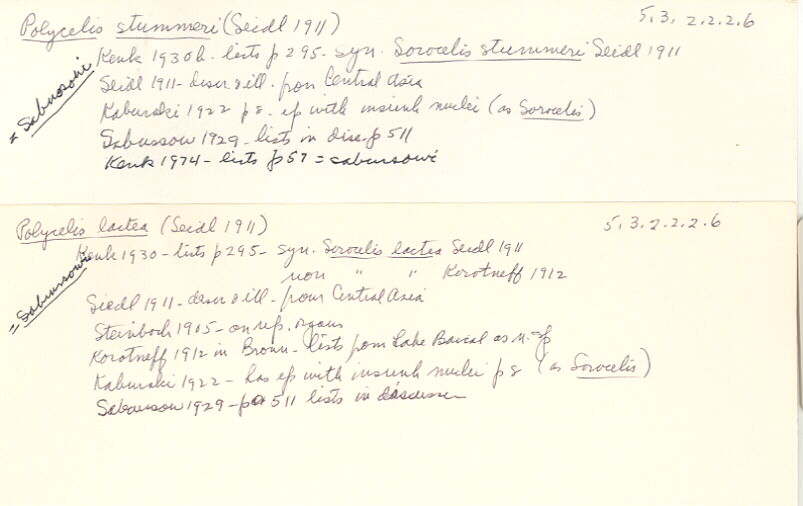 Polycelis stummeri (Seidl 1911)
5.3.2.2.2.6
Kenk 1930b. lists p 295 - syn. Sorocelis stummeri Seidl 1911
= Sabussowi
Seidl 1911 - descr & ill. from Central Asia
Kaburaki 1922 p 8. ep with insunk nuclei (as Sorocelis)
Sabussow 1929 - lists in disc. p 511
Kenk 1974 - lists p 57 = sabussowi
Polycelis lactea (Seidl 1911)
5.3.2.2.2.6
Kenk 1930 - lists p 295 - syn. Sorocelis lactea Seidl 1911
non " " Korotneff 1912
= Sabussowi
Siedl 1911 - descr & ill - from Central Asia
Steinboch 1905 - on rep. organs
Korotneff 1912 in Bronn - lists from Lake Baical as n. sp
Kaburaki 1922 - has ep with insunk nuclei p 8 (as Sorocelis)
Sabussow 1929 - p 511 lists in discussion